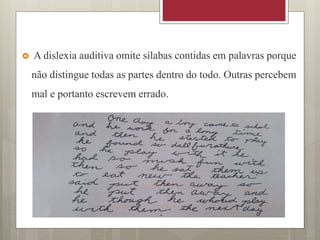 A dislexia auditiva omite sílabas contidas em palavras porque
não distingue todas as partes dentro do todo. Outras percebem
mal e portanto escrevem errado.
One day a boy came to
and he work for a long time
and then he started to play
he found so dall furnature
so he play with it he
had so mush fun with
then so he sat them up
to eat new the teacher
said put then away so
he put then away and
he though he whobid play
with them the next day